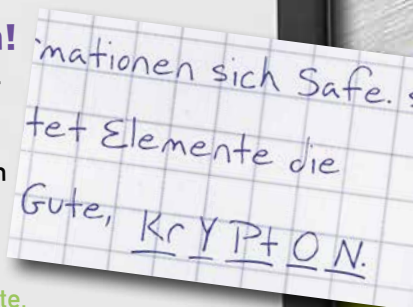 !
mationen sich Safe.
tet Elemente die
Gute, Kr Y Pt O N.
te.